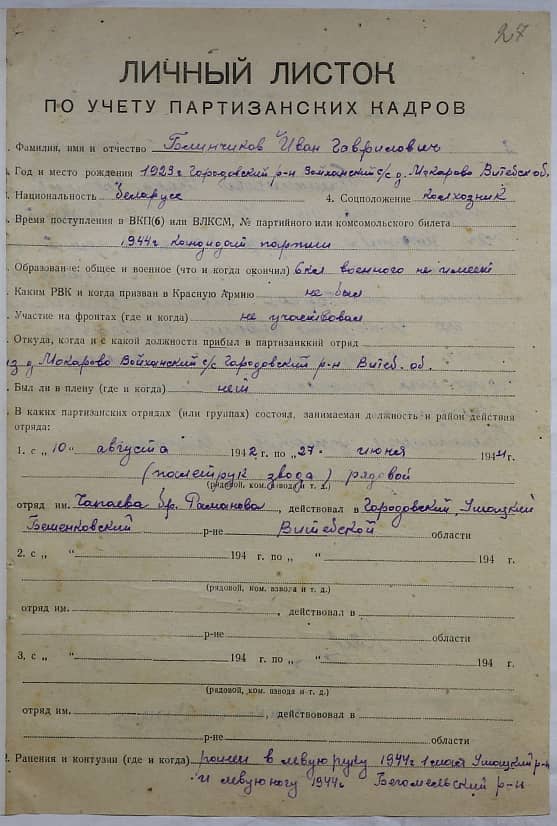 27
ЛИЧНЫЙ ЛИСТОК
ПО УЧЕТУ ПАРТИЗАНСКИХ КАДРОВ
. Фамилия, имя и отчество Блинчиков Иван Гаврилович
. Год и место рождения 1923 г Городовский р-н Войханский с/с д. Мокарово Витебск об.
. Национальность беларусс 4. Соцположение колхозник
. Время поступления в ВКП(б) или ВЛКСМ, № партийного или комсомольского билета
1944 г кандидат партии
. Образование: общее и военное (что и когда окончил) 6 кл военного не имеет
. Каким РВК и когда призван в Красную Армию не был
. Участие на фронтах (где и когда) не участвовал
. Откуда, когда и с какой должности прибыл в партизанккий отряд
из д. Мокарово Войханский с/с Городовский р-н Витеб. об.
. Был ли в плену (где и когда) нет
. В каких партизанских отрядах (или группах) состоял, занимаемая должность и район действия
отряда:
1. с „ 10 “ августа 1942 г. по „ 27 “ июня 1944 г.
(политрук звода) рядовой
(рядовой, ком. взвода и т. д.)
отряд им. Чапаева бр. Романова, действовал в Городовский, Ушацкий
Бешенковский р-не Витебской области
2. с „ “ 194 г. по „ “ 194 г.
(рядовой, ком. взвода и т. д.)
отряд им. , действовал в
р-не области
3, с „ “ 194 г. по „ “ 194 г.
(рядовой, ком. взвода и т. д.)
отряд им. , действововал в
р-не области
2. Ранения и контузии (где и когда) ранен в левую руку 1944 г 1 мая Ушацкий р-н
и левую ногу 1944 г Бегомельский р-н